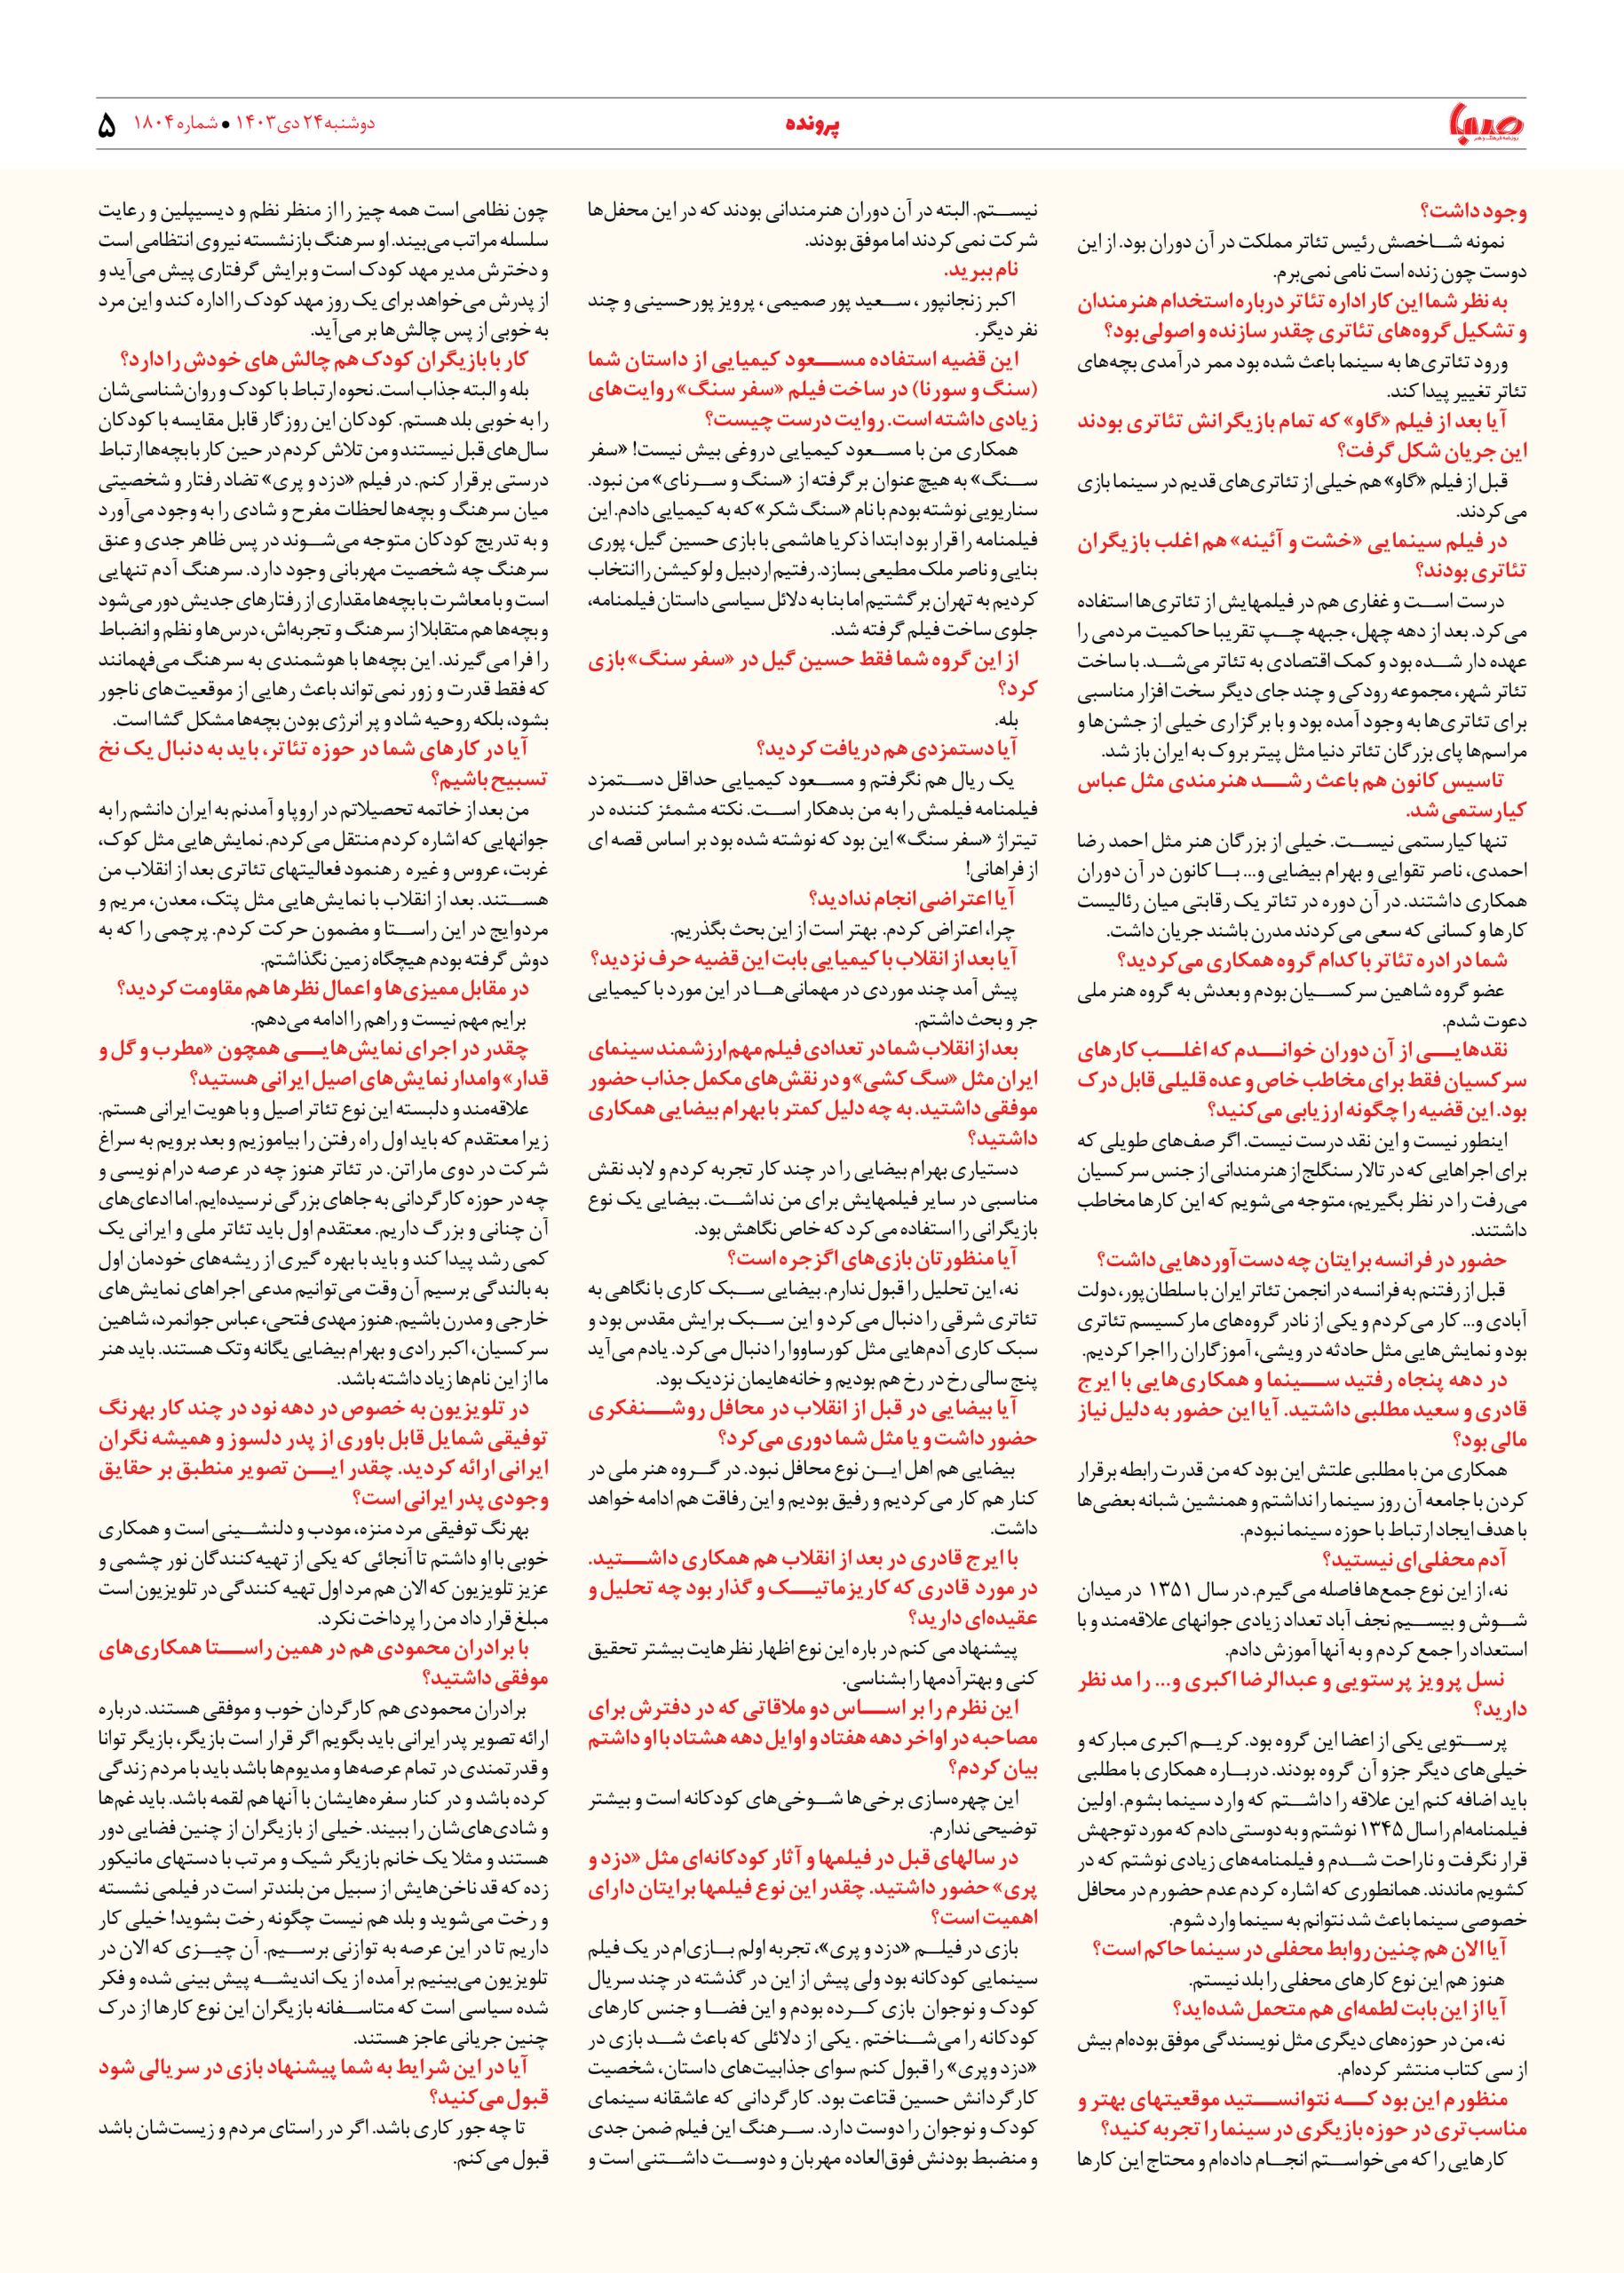 صبا
روزنامه فرهنگ و هنر
پرونده
دوشنبه ۲۴ دی ۱۴۰۳ • شماره ۱۸۰۴
۵
وجود داشت؟
نمونه شاخصش رئیس تئاتر مملکت در آن دوران بود. از این
دوست چون زنده است نامی نمی‌برم.
به نظر شما این کار اداره تئاتر درباره استخدام هنرمندان
و تشکیل گروه‌های تئاتری چقدر سازنده و اصولی بود؟
ورود تئاتری‌ها به سینما باعث شده بود ممر درآمدی بچه‌های
تئاتر تغییر پیدا کند.
آیا بعد از فیلم «گاو» که تمام بازیگرانش تئاتری بودند
این جریان شکل گرفت؟
قبل از فیلم «گاو» هم خیلی از تئاتری‌های قدیم در سینما بازی
می‌کردند.
در فیلم سینمایی «خشت و آئینه» هم اغلب بازیگران
تئاتری بودند؟
درست است و غفاری هم در فیلمهایش از تئاتری‌ها استفاده
می‌کرد. بعد از دهه چهل، جبهه چپ تقریبا حاکمیت مردمی را
عهده دار شده بود و کمک اقتصادی به تئاتر می‌شد. با ساخت
تئاتر شهر، مجموعه رودکی و چند جای دیگر سخت افزار مناسبی
برای تئاتری‌ها به وجود آمده بود و با برگزاری خیلی از جشن‌ها و
مراسم‌ها پای بزرگان تئاتر دنیا مثل پیتر بروک به ایران باز شد.
تاسیس کانون هم باعث رشد هنرمندی مثل عباس
کیارستمی شد.
تنها کیارستمی نیست. خیلی از بزرگان هنر مثل احمد رضا
احمدی، ناصر تقوایی و بهرام بیضایی و... با کانون در آن دوران
همکاری داشتند. در آن دوره در تئاتر یک رقابتی میان رئالیست
کارها و کسانی که سعی می‌کردند مدرن باشند جریان داشت.
شما در ادره تئاتر با کدام گروه همکاری می‌کردید؟
عضو گروه شاهین سرکسیان بودم و بعدش به گروه هنر ملی
دعوت شدم.
نقدهایی از آن دوران خواندم که اغلب کارهای
سرکسیان فقط برای مخاطب خاص و عده قلیلی قابل درک
بود. این قضیه را چگونه ارزیابی می‌کنید؟
اینطور نیست و این نقد درست نیست. اگر صف‌های طویلی که
برای اجراهایی که در تالار سنگلج از هنرمندانی از جنس سرکسیان
می‌رفت را در نظر بگیریم، متوجه می‌شویم که این کارها مخاطب
داشتند.
حضور در فرانسه برایتان چه دست‌آوردهایی داشت؟
قبل از رفتنم به فرانسه در انجمن تئاتر ایران با سلطان‌پور، دولت
آبادی و... کار می‌کردم و یکی از نادر گروه‌های مارکسیسم تئاتری
بود و نمایش‌هایی مثل حادثه در ویشی، آموزگاران را اجرا کردیم.
در دهه پنجاه رفتید سینما و همکاری‌هایی با ایرج
قادری و سعید مطلبی داشتید. آیا این حضور به دلیل نیاز
مالی بود؟
همکاری من با مطلبی علتش این بود که من قدرت رابطه برقرار
کردن با جامعه آن روز سینما را نداشتم و همنشین شبانه بعضی‌ها
با هدف ایجاد ارتباط با حوزه سینما نبودم.
آدم محفلی‌ای نیستید؟
نه، از این نوع جمع‌ها فاصله می‌گیرم. در سال ۱۳۵۱ در میدان
شوش و بیسیم نجف آباد تعداد زیادی جوانهای علاقه‌مند و با
استعداد را جمع کردم و به آنها آموزش دادم.
نسل پرویز پرستویی و عبدالرضا اکبری و... را مد نظر
دارید؟
پرستویی یکی از اعضا این گروه بود. کریم اکبری مبارکه و
خیلی‌های دیگر جزو آن گروه بودند. درباره همکاری با مطلبی
باید اضافه کنم این علاقه را داشتم که وارد سینما بشوم. اولین
فیلمنامه‌ام را سال ۱۳۴۵ نوشتم و به دوستی دادم که مورد توجهش
قرار نگرفت و ناراحت شدم و فیلمنامه‌های زیادی نوشتم که در
کشویم ماندند. همانطوری که اشاره کردم عدم حضورم در محافل
خصوصی سینما باعث شد نتوانم به سینما وارد شوم.
آیا الان هم چنین روابط محفلی در سینما حاکم است؟
هنوز هم این نوع کارهای محفلی را بلد نیستم.
آیا از این بابت لطمه‌ای هم متحمل شده‌اید؟
نه، من در حوزه‌های دیگری مثل نویسندگی موفق بوده‌ام بیش
از سی کتاب منتشر کرده‌ام.
منظورم این بود که نتوانستید موقعیتهای بهتر و
مناسب‌تری در حوزه بازیگری در سینما را تجربه کنید؟
کارهایی را که می‌خواستم انجام داده‌ام و محتاج این کارها
نیستم. البته در آن دوران هنرمندانی بودند که در این محفل‌ها
شرکت نمی‌کردند اما موفق بودند.
نام ببرید.
اکبر زنجانپور ، سعید پور صمیمی ، پرویز پورحسینی و چند
نفر دیگر.
این قضیه استفاده مسعود کیمیایی از داستان شما
(سنگ و سورنا) در ساخت فیلم «سفر سنگ» روایت‌های
زیادی داشته است. روایت درست چیست؟
همکاری من با مسعود کیمیایی دروغی بیش نیست! «سفر
سنگ» به هیچ عنوان برگرفته از «سنگ و سرنای» من نبود.
سناریویی نوشته بودم با نام «سنگ شکر» که به کیمیایی دادم. این
فیلمنامه را قرار بود ابتدا ذکریا هاشمی با بازی حسین گیل، پوری
بنایی و ناصر ملک مطیعی بسازد. رفتیم اردبیل و لوکیشن را انتخاب
کردیم به تهران برگشتیم اما بنا به دلائل سیاسی داستان فیلمنامه،
جلوی ساخت فیلم گرفته شد.
از این گروه شما فقط حسین گیل در «سفر سنگ» بازی
کرد؟
بله.
آیا دستمزدی هم دریافت کردید؟
یک ریال هم نگرفتم و مسعود کیمیایی حداقل دستمزد
فیلمنامه فیلمش را به من بدهکار است. نکته مشمئز کننده در
تیتراژ «سفر سنگ» این بود که نوشته شده بود بر اساس قصه ای
از فراهانی!
آیا اعتراضی انجام ندادید؟
چرا، اعتراض کردم. بهتر است از این بحث بگذریم.
آیا بعد از انقلاب با کیمیایی بابت این قضیه حرف نزدید؟
پیش آمد چند موردی در مهمانی‌ها در این مورد با کیمیایی
جر و بحث داشتم.
بعد از انقلاب شما در تعدادی فیلم مهم ارزشمند سینمای
ایران مثل «سگ کشی» و در نقش‌های مکمل جذاب حضور
موفقی داشتید. به چه دلیل کمتر با بهرام بیضایی همکاری
داشتید؟
دستیاری بهرام بیضایی را در چند کار تجربه کردم و لابد نقش
مناسبی در سایر فیلمهایش برای من نداشت. بیضایی یک نوع
بازیگرانی را استفاده می‌کرد که خاص نگاهش بود.
آیا منظورتان بازی‌های اگزجره است؟
نه، این تحلیل را قبول ندارم. بیضایی سبک کاری با نگاهی به
تئاتری شرقی را دنبال می‌کرد و این سبک برایش مقدس بود و
سبک کاری آدم‌هایی مثل کورساووا را دنبال می‌کرد. یادم می‌آید
پنج سالی رخ در رخ هم بودیم و خانه‌هایمان نزدیک بود.
آیا بیضایی در قبل از انقلاب در محافل روشنفکری
حضور داشت و یا مثل شما دوری می‌کرد؟
بیضایی هم اهل این نوع محافل نبود. در گروه هنر ملی در
کنار هم کار می‌کردیم و رفیق بودیم و این رفاقت هم ادامه خواهد
داشت.
با ایرج قادری در بعد از انقلاب هم همکاری داشتید.
در مورد قادری که کاریزماتیک و گذار بود چه تحلیل و
عقیده‌ای دارید؟
پیشنهاد می کنم در باره این نوع اظهار نظرهایت بیشتر تحقیق
کنی و بهتر آدمها را بشناسی.
این نظرم را بر اساس دو ملاقاتی که در دفترش برای
مصاحبه در اواخر دهه هفتاد و اوایل دهه هشتاد با او داشتم
بیان کردم؟
این چهره‌سازی برخی‌ها شوخی‌های کودکانه است و بیشتر
توضیحی ندارم.
در سالهای قبل در فیلمها و آثار کودکانه‌ای مثل «دزد و
پری» حضور داشتید. چقدر این نوع فیلمها برایتان دارای
اهمیت است؟
بازی در فیلم «دزد و پری»، تجربه اولم بازی‌ام در یک فیلم
سینمایی کودکانه بود ولی پیش از این در گذشته در چند سریال
کودک و نوجوان بازی کرده بودم و این فضا و جنس کارهای
کودکانه را می‌شناختم . یکی از دلائلی که باعث شد بازی در
«دزد و پری» را قبول کنم سوای جذابیت‌های داستان، شخصیت
کارگردانش حسین قناعت بود. کارگردانی که عاشقانه سینمای
کودک و نوجوان را دوست دارد. سرهنگ این فیلم ضمن جدی
و منضبط بودنش فوق‌العاده مهربان و دوست داشتنی است و
چون نظامی است همه چیز را از منظر نظم و دیسیپلین و رعایت
سلسله مراتب می‌بیند. او سرهنگ بازنشسته نیروی انتظامی است
و دخترش مدیر مهد کودک است و برایش گرفتاری پیش می‌آید و
از پدرش می‌خواهد برای یک روز مهد کودک را اداره کند و این مرد
به خوبی از پس چالش‌ها بر می‌آید.
کار با بازیگران کودک هم چالش های خودش را دارد؟
بله و البته جذاب است. نحوه ارتباط با کودک و روان‌شناسی‌شان
را به خوبی بلد هستم. کودکان این روزگار قابل مقایسه با کودکان
سال‌های قبل نیستند و من تلاش کردم در حین کار با بچه‌ها ارتباط
درستی برقرار کنم. در فیلم «دزد و پری» تضاد رفتار و شخصیتی
میان سرهنگ و بچه‌ها لحظات مفرح و شادی را به وجود می‌آورد
و به تدریج کودکان متوجه می‌شوند در پس ظاهر جدی و عنق
سرهنگ چه شخصیت مهربانی وجود دارد. سرهنگ آدم تنهایی
است و با معاشرت با بچه‌ها مقداری از رفتارهای جدیش دور می‌شود
و بچه‌ها هم متقابلا از سرهنگ و تجربه‌اش، درس‌ها و نظم و انضباط
را فرا می‌گیرند. این بچه‌ها با هوشمندی به سرهنگ می‌فهمانند
که فقط قدرت و زور نمی‌تواند باعث رهایی از موقعیت‌های ناجور
بشود، بلکه روحیه شاد و پر انرژی بودن بچه‌ها مشکل گشا است.
آیا در کارهای شما در حوزه تئاتر، باید به دنبال یک نخ
تسبیح باشیم؟
من بعد از خاتمه تحصیلاتم در اروپا و آمدنم به ایران دانشم را به
جوانهایی که اشاره کردم منتقل می‌کردم. نمایش‌هایی مثل کوک،
غربت، عروس و غیره رهنمود فعالیتهای تئاتری بعد از انقلاب من
هستند. بعد از انقلاب با نمایش‌هایی مثل پتک، معدن، مریم و
مردوایج در این راستا و مضمون حرکت کردم. پرچمی را که به
دوش گرفته بودم هیچگاه زمین نگذاشتم.
در مقابل ممیزی‌ها و اعمال نظرها هم مقاومت کردید؟
برایم مهم نیست و راهم را ادامه می‌دهم.
چقدر در اجرای نمایش‌هایی همچون «مطرب و گل و
قدار» وامدار نمایش‌های اصیل ایرانی هستید؟
علاقه‌مند و دلبسته این نوع تئاتر اصیل و با هویت ایرانی هستم.
زیرا معتقدم که باید اول راه رفتن را بیاموزیم و بعد برویم به سراغ
شرکت در دوی ماراتن. در تئاتر هنوز چه در عرصه درام نویسی و
چه در حوزه کارگردانی به جاهای بزرگی نرسیده‌ایم. اما ادعای‌های
آن چنانی و بزرگ داریم. معتقدم اول باید تئاتر ملی و ایرانی یک
کمی رشد پیدا کند و باید با بهره گیری از ریشه‌های خودمان اول
به بالندگی برسیم آن وقت می‌توانیم مدعی اجراهای نمایش‌های
خارجی و مدرن باشیم. هنوز مهدی فتحی، عباس جوانمرد، شاهین
سرکسیان، اکبر رادی و بهرام بیضایی یگانه و تک هستند. باید هنر
ما از این نام‌ها زیاد داشته باشد.
در تلویزیون به خصوص در دهه نود در چند کار بهرنگ
توفیقی شمایل قابل باوری از پدر دلسوز و همیشه نگران
ایرانی ارائه کردید. چقدر این تصویر منطبق بر حقایق
وجودی پدر ایرانی است؟
بهرنگ توفیقی مرد منزه، مودب و دلنشینی است و همکاری
خوبی با او داشتم تا آنجائی که یکی از تهیه‌کنندگان نور چشمی و
عزیز تلویزیون که الان هم مرد اول تهیه کنندگی در تلویزیون است
مبلغ قرار داد من را پرداخت نکرد.
با برادران محمودی هم در همین راستا همکاری‌های
موفقی داشتید؟
برادران محمودی هم کارگردان خوب و موفقی هستند. درباره
ارائه تصویر پدر ایرانی باید بگویم اگر قرار است بازیگر، بازیگر توانا
و قدرتمندی در تمام عرصه‌ها و مدیوم‌ها باشد باید با مردم زندگی
کرده باشد و در کنار سفره‌هایشان با آنها هم لقمه باشد. باید غم‌ها
و شادی‌های‌شان را ببیند. خیلی از بازیگران از چنین فضایی دور
هستند و مثلا یک خانم بازیگر شیک و مرتب با دستهای مانیکور
زده که قد ناخن‌هایش از سبیل من بلندتر است در فیلمی نشسته
و رخت می‌شوید و بلد هم نیست چگونه رخت بشوید! خیلی کار
داریم تا در این عرصه به توازنی برسیم. آن چیزی که الان در
تلویزیون می‌بینیم برآمده از یک اندیشه پیش بینی شده و فکر
شده سیاسی است که متاسفانه بازیگران این نوع کارها از درک
چنین جریانی عاجز هستند.
آیا در این شرایط به شما پیشنهاد بازی در سریالی شود
قبول می‌کنید؟
تا چه جور کاری باشد. اگر در راستای مردم و زیست‌شان باشد
قبول می‌کنم.